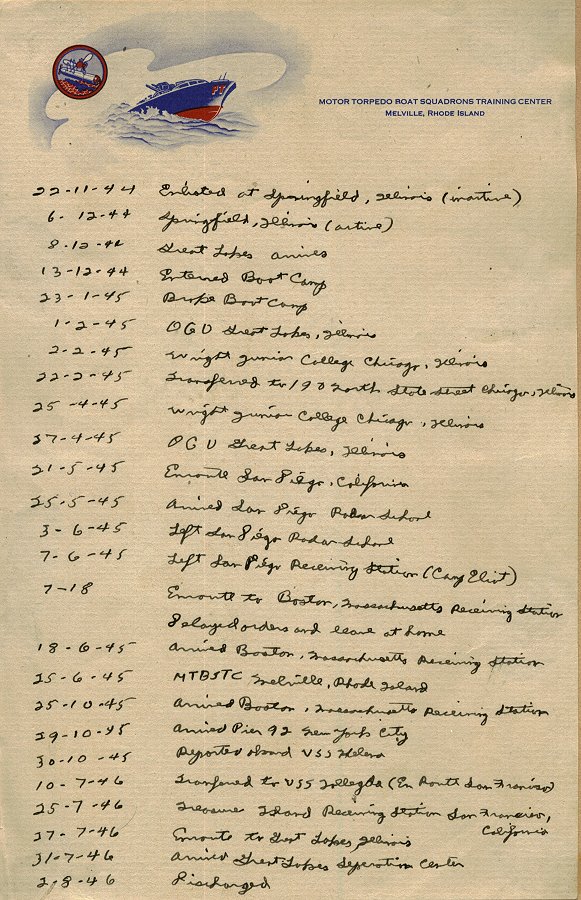 PT
MOTOR TORPEDO BOAT SQUADRONS TRAINING CENTER
MELVILLE, RHODE ISLAND
22-11-44 Enlisted at Springfield, Illinois (inactive)
6-12-44 Springfield, Illinois (active)
8-12-44 Great Lakes arrives
13-12-44 Entered Boot Camp
23-1-45 Broke Boot Camp
1-2-45 OGU Great Lakes, Illinois
2-2-45 Wright Junior College Chicago, Illinois
22-2-45 Transferred to 190 North State Street Chicago, Illinois
25-4-45 Wright Junior College Chicago, Illinois
27-4-45 OGU Great Lakes, Illinois
21-5-45 Enroute San Diego, California
25-5-45 Arrived San Diego Radar School
3-6-45 Left San Diego Radar School
7-6-45 Left San Diego Receiving Station (Camp Eliot)
7-18 Enroute to Boston, Massachusetts Receiving Station
Delayed orders and leave at home
18-6-45 Arrived Boston, Massachusetts Receiving Station
25-6-45 MTBSTC Melville, Rhode Island
25-10-45 Arrived Boston, Massachusetts Receiving Station
29-10-45 Arrived Pier 92 New York City
30-10-45 Reported aboard USS Helena
10-7-46 Transfered to USS (En Route San Francisco)
25-7-46 Treasure Island Receiving Station San Francisco,
California
27-7-46 Enroute to Great Lakes Illinois
31-7-46 Arrived Great Lakes Seperation Center
2-8-46 Discharged